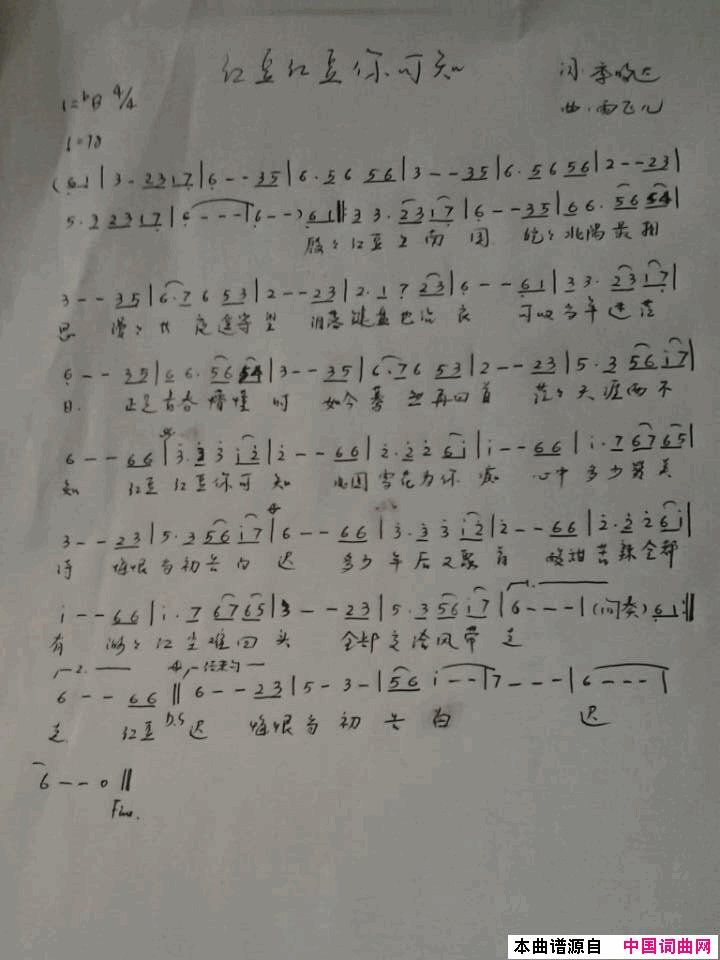 红豆红豆你可知
词:李晓
曲:雨飞儿
1=bB 4/4
(6 1 | 3 - 2 3 1 7 | 6 - - 3 5 | 6 · 5 6 5 6 | 3 - - 3 5 | 6 · 5 6 5 6 | 2 - - 2 3 |
5 · 2 2 3 1 7 | 6 - - - | 6 - - ) 6 1 ‖: 3 3 · 2 3 1 7 | 6 - - 3 5 | 6 6 · 5 6 5 4 |
殷殷红豆 南国 北 最相
3 - - 3 5 | 6 · 7 6 5 3 | 2 - - 2 3 | 2 · 1 7 2 3 | 6 - - 6 1 | 3 3 · 2 3 1 7 |
思 漫漫 夜 守望 泪落键盘也 可叹当年
6 - - 3 5 | 6 6 · 5 6 5 4 | 3 - - 3 5 | 6 · 7 6 5 3 | 2 - - 2 3 | 5 · 3 5 6 i 7 |
日 正是青春懵懂时 如今蓦然再回首 茫茫天涯两不
6 - - 6 6 | 3 · 3 3 i 2 | 2 - - 6 6 | 2 · 2 2 6 i | i - - 6 6 | i · 7 6 7 6 5 |
知 红豆红豆你可知 北国雪花为你痴 心中多少
3 - - 2 3 | 5 · 3 5 6 i 7 | 6 - - 6 6 | 3 · 3 3 i 2 | 2 - - 6 6 | 2 · 2 2 6 i |
诗 悔恨当初告白迟 多少年后又聚首 酸甜苦辣全都
i - - 6 6 | i · 7 6 7 6 5 | 3 - - 2 3 | 5 · 3 5 6 i 7 | 6 - - - | (间奏) 6 1 :‖
有 红尘难回头 全部交冷风带走
2. 结束句
6 - - 6 6 ‖ 6 - - 2 3 | 5 - 3 - | 5 6 i - - | 7 - - - | 6 - - - |
走 红豆 D.S 迟 悔恨当初告白 迟
6 - - 0 ‖
Fine.
本曲谱源自 中国词曲网